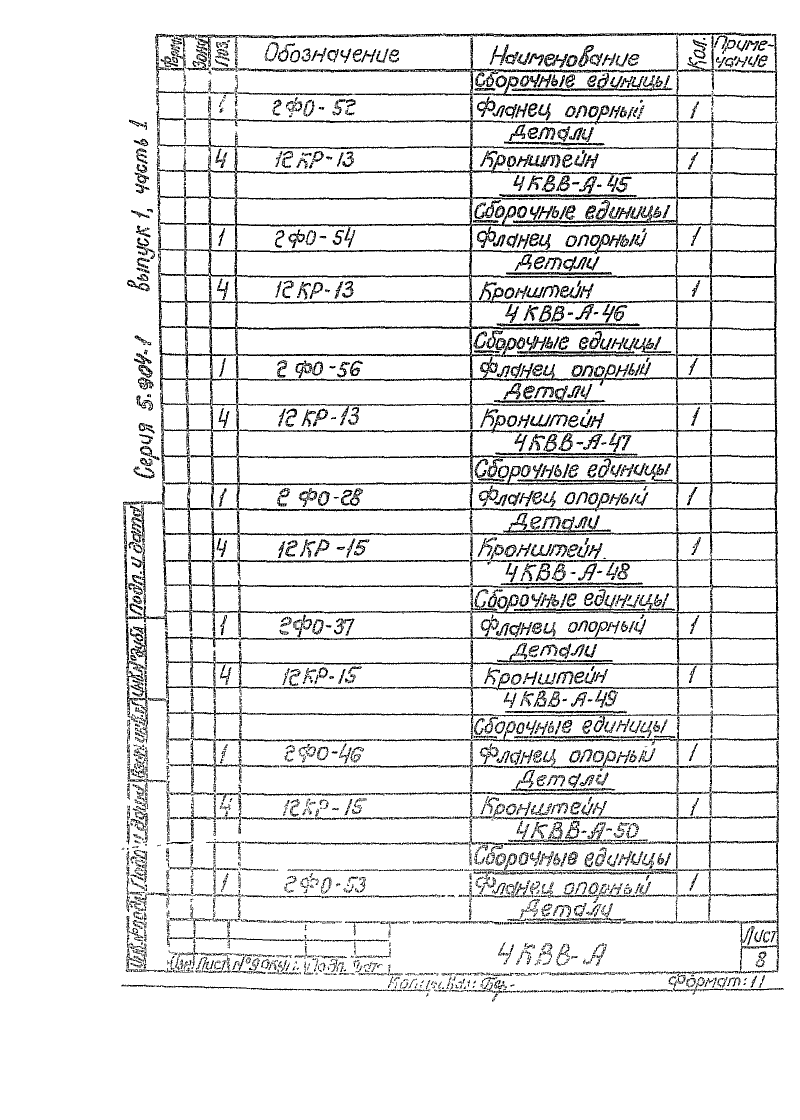 Форм. Зона Поз. Обозначение Наименование Кол. Приме-
чание
Сборочные единицы
1 2ФО-52 Фланец опорный 1
Детали
4 12КР-13 Кронштейн 1
4КВВ-А-45
Сборочные единицы
1 2ФО-54 Фланец опорный 1
Детали
4 12КР-13 Кронштейн 1
4КВВ-А-46
Сборочные единицы
1 2ФО-56 Фланец опорный 1
Детали
4 12КР-13 Кронштейн 1
4КВВ-А-47
Сборочные единицы
1 2ФО-28 Фланец опорный 1
Детали
4 12КР-15 Кронштейн 1
4КВВ-А-48
Сборочные единицы
1 2ФО-37 Фланец опорный 1
Детали
4 12КР-15 Кронштейн 1
4КВВ-А-49
Сборочные единицы
1 2ФО-46 Фланец опорный 1
Детали
4 12КР-15 Кронштейн 1
4КВВ-А-50
Сборочные единицы
1 2ФО-53 Фланец опорный 1
Детали
Серия 5.904-1 выпуск 1, часть 1
Подп. и дата
Инв.№ дубл.
Взам. инв.№
Подп. и дата
Инв.№ подл.
Изм Лист № докум. Подп. Дата
4КВВ-А
Лист
8
Копировал:
Формат: 11